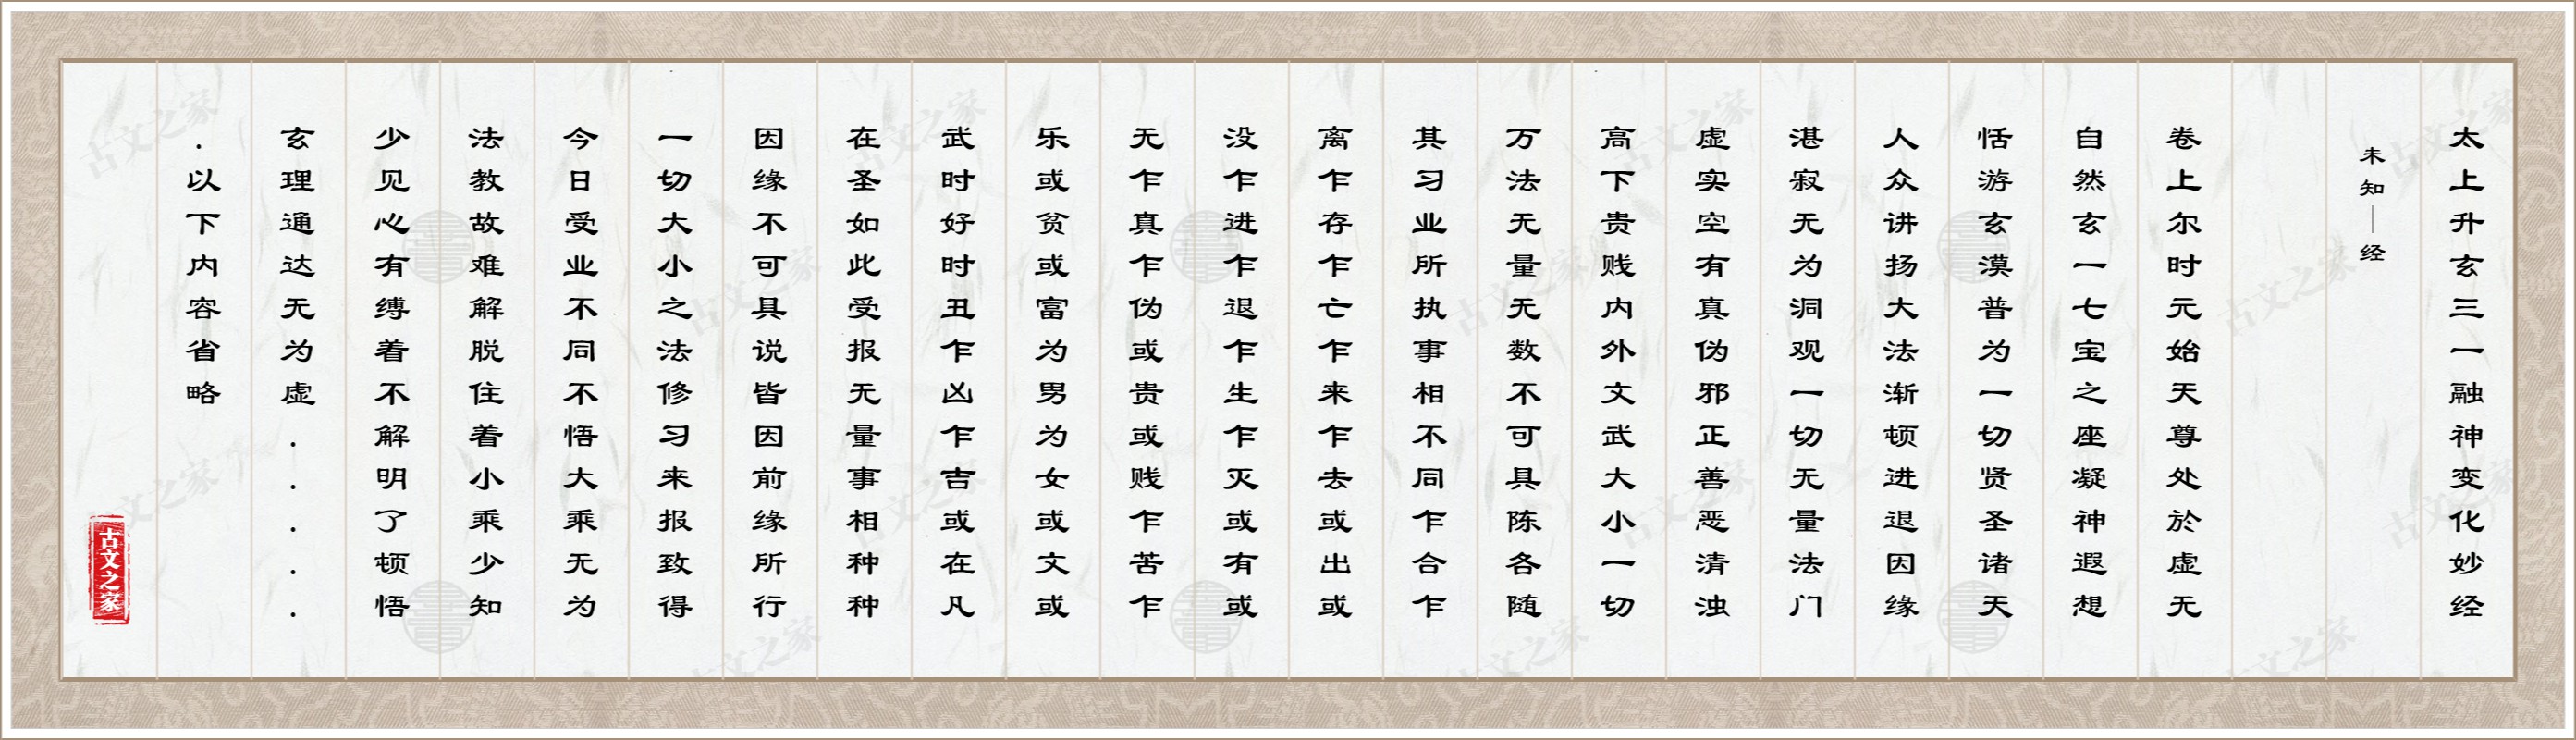 太上升玄三一融神变化妙经
未知｜经
卷上尔时元始天尊处於虚无
自然玄一七宝之座凝神遐想
恬游玄漠普为一切贤圣诸天
人众讲扬大法渐顿进退因缘
湛寂无为洞观一切无量法门
虚实空有真伪邪正善恶清浊
高下贵贱内外文武大小一切
万法无量无数不可具陈各随
其习业所执事相不同乍合乍
离乍存乍亡乍来乍去或出或
没乍进乍退乍生乍灭或有或
无乍真乍伪或贵或贱乍苦乍
乐或贫或富为男为女或文或
武时好时丑乍凶乍吉或在凡
在圣如此受报无量事相种种
因缘不可具说皆因前缘所行
一切大小之法修习来报致得
今日受业不同不悟大乘无为
法教故难解脱住着小乘少知
少见心有缚着不解明了顿悟
玄理通达无为虚.....
.以下内容省略
古文之家